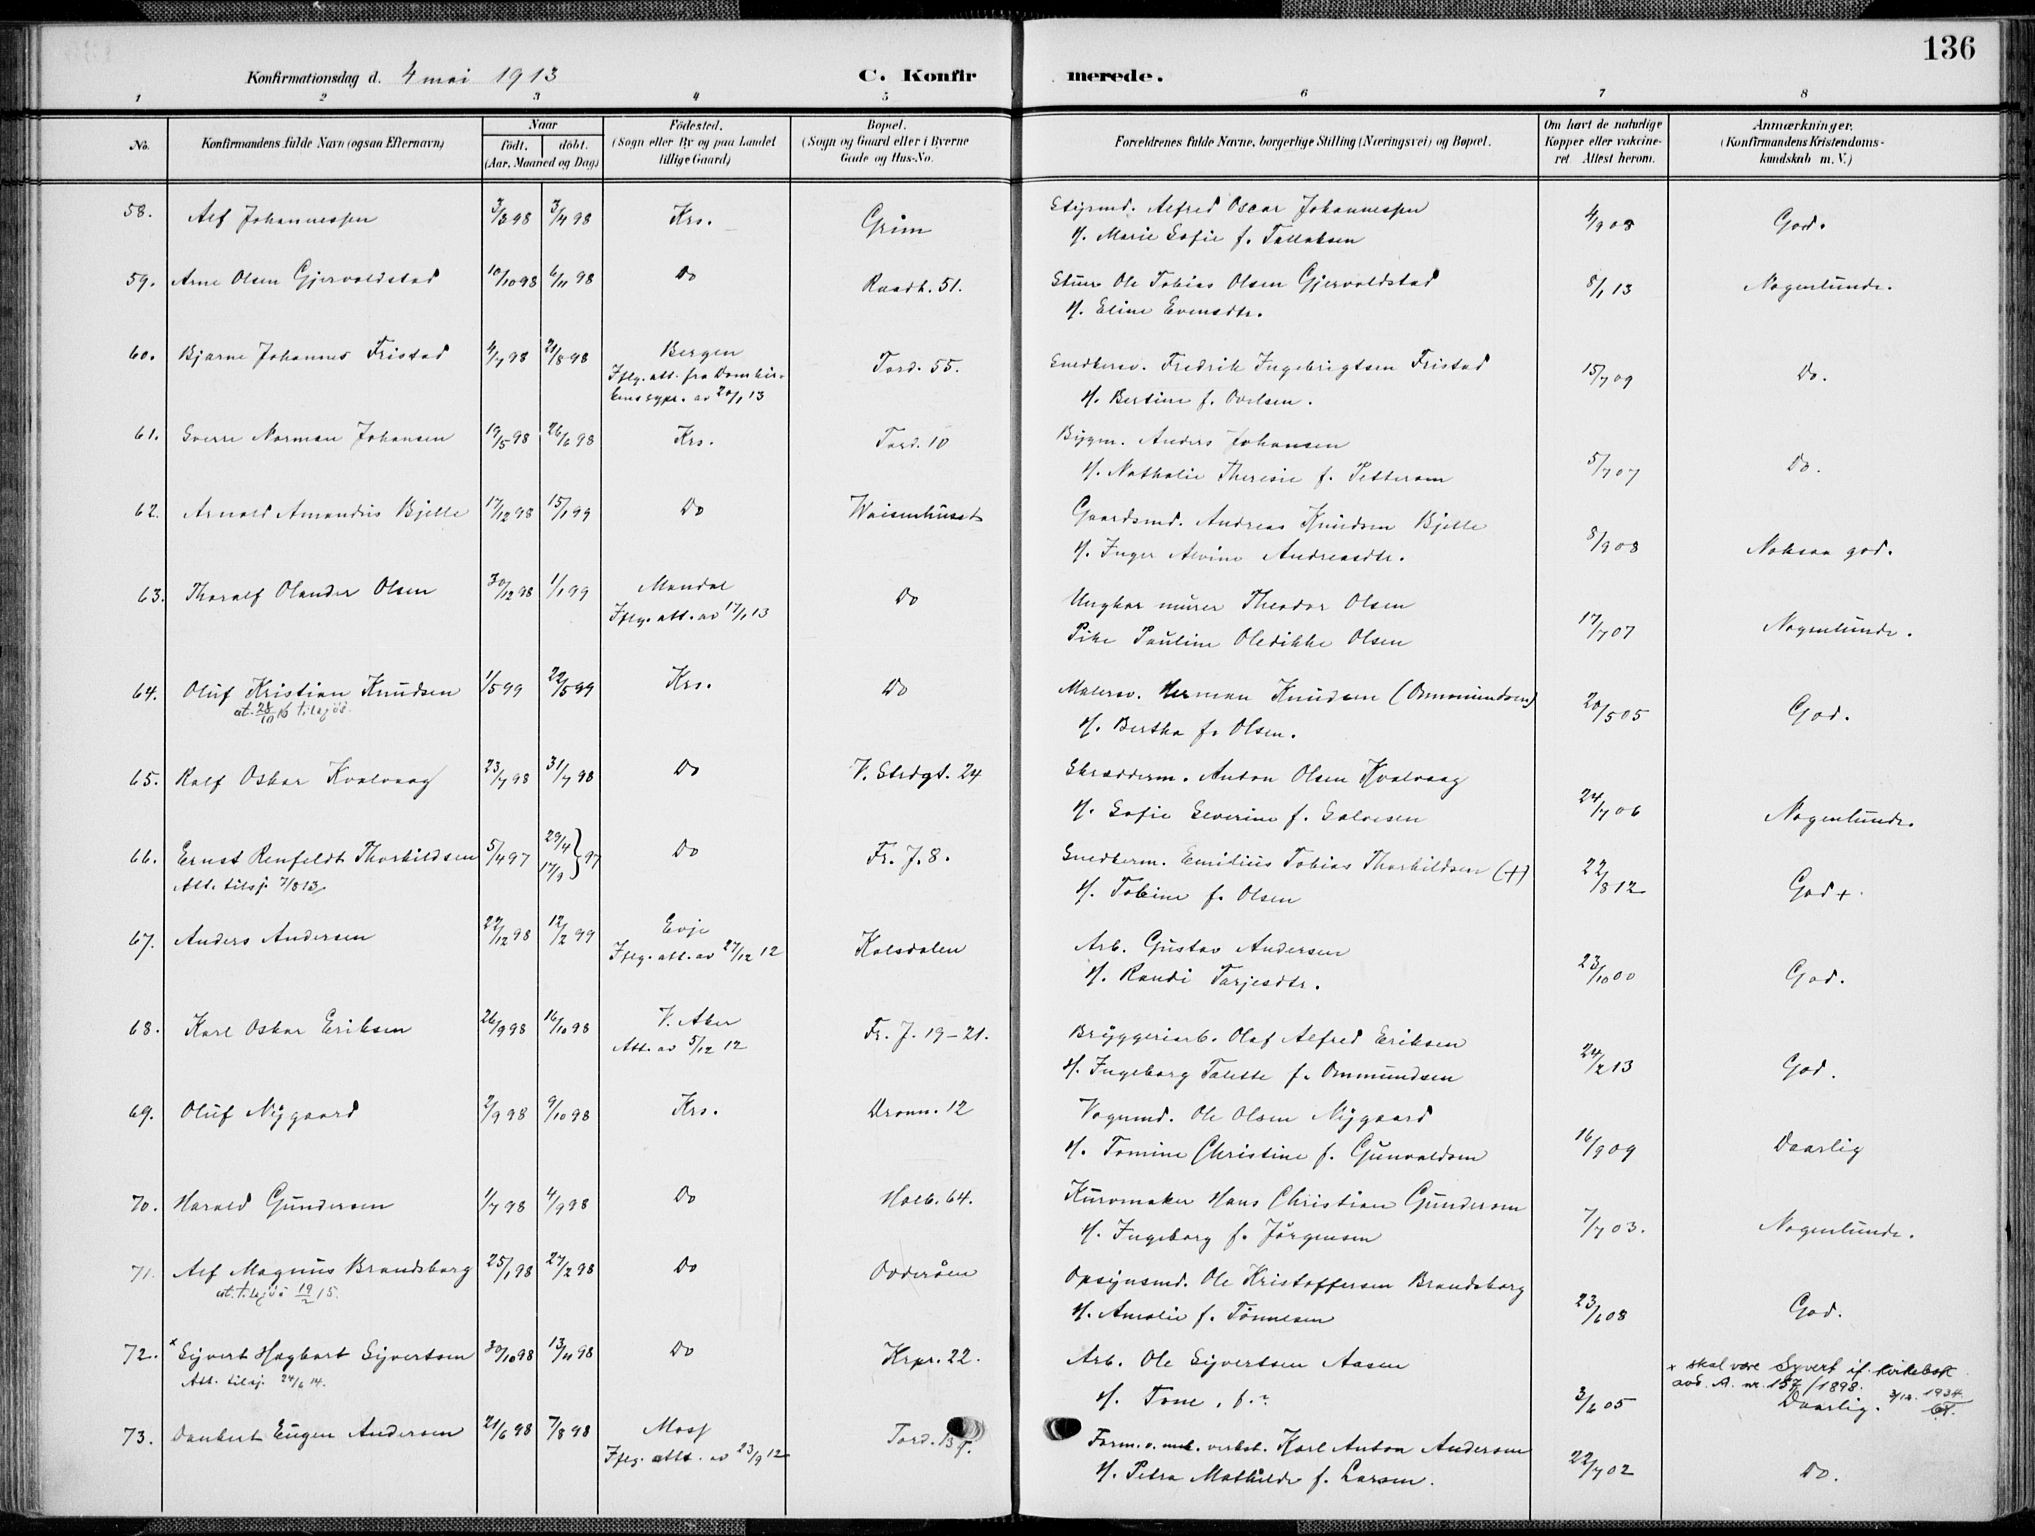 136
Konfirmationsdag d. 4 mai 1913 C. Konfirmerede.
1 2 3 4 5 6 7 8
No. Konfirmandens fulde Navn (ogsaa Efternavn) Naar født. døbt. (Aar, Maaned og Dag) Fødested. (Sogn eller By og paa Landet tillige Gaard) Bopæl. (Sogn og Gaard eller i Byerne Gade og Hus-No. Forældrenes fulde Navne, borgerlige Stilling (Næringsvei) og Bopæl. Om havt de naturlige Kopper eller vakcineret Attest herom. Anmærkninger. (Konfirmandens Kristendomskundskab m. V.)
58. Alf Johannessen 3/3 98 3/4 98 Krs. Grim Styrmd. Alfred Oscar Johannessen 4/9 08 God.
H. Marie Sofie f. Tallaksen
59. Arne Olsen Gjervoldstad 10/10 98 6/11 98 Do Raadh. 51. Stuer Ole Tobias Olsen Gjervoldstad 8/1 13 Nogenlunde.
H. Eline Evensdtr.
60. Bjarne Johannes Fristad 4/7 98 21/8 98 Bergen Tord. 55. Snedkersv. Fredrik Ingebrigtsen Fristad 15/7 09 Do.
Iflg. att. fra Domkirkens sgpr. av 20/1 13
H. Bertine f. Ovelsen.
61. Sverre Norman Johansen 19/5 98 26/6 98 Krs. Tord. 10 Bygm. Anders Johansen 5/7 07 Do.
H. Nathalie Theresie f. Pettersen
62. Arnold Amandus Bjelle 17/12 98 15/1 99 Do Waisenhuset Gaardsmd. Andreas Knudsen Bjelle 8/9 08 Noksaa god.
H. Inger Alvine Andreasdtr.
63. Thoralf Olander Olsen 30/12 98 1/1 99 Mandal Do Ungkar murer Theodor Olsen 17/7 07 Nogenlunde.
Iflg. att. av 17/1 13
Pike Pauline Oledikke Olsen
64. Oluf Kristian Knudsen 1/5 99 22/5 99 Krs. Do Malersv. Herman Knudsen (Ommundsen) 20/5 05 God.
at. 28/10 16 tilsjøs.
H. Bertha f. Olsen.
65. Ralf Oskar Kvalvaag 23/7 98 31/7 98 Do V. Strdgt. 24 Skrædderm. Anton Olsen Kvalvaag 24/7 06 Nogenlunde.
H. Sofie Severine f. Salvesen
66. Ernst Renfeldt Thorkildsen 5/4 97 29/4 17/9 } 97 Do Fr. J. 8. Snedkerm. Emilius Tobias Thorkildsen (+) 22/8 12 God +.
Att. tilsj. 7/8 13
H. Tobine f. Olsen
67. Anders Andersen 22/12 98 12/2 99 Evje Kolsdalen Arb. Gustav Andersen 23/10 00 God.
Iflg. att. av 27/12 12
H. Randi Tarjesdtr.
68. Karl Oskar Eriksen 26/9 98 16/10 98 V. Aker Fr. J. 19-21. Bryggeriarb. Olaf Alfred Eriksen 24/2 13 God.
Att. av 5/12 12
H. Ingeborg Talette f. Ommundsen
69. Oluf Nygaard 2/9 98 9/10 98 Krs. Dronn. 12 Vognmd. Ole Olsen Nygaard 16/9 09 Daarlig
H. Tomine Christine f. Gunvaldsen
70. Harald Gundersen 1/7 98 4/9 98 Do Holb. 64. Kurvmaker Hans Christian Gundersen 7/7 03. Nogenlunde.
H. Ingeborg f. Jørgensen
71. Alf Magnus Brandsborg 25/1 98 27/2 98 Do Odderøen Opsynsmd. Ole Kristoffersen Brandsborg 23/6 08 God.
at. tilsjøs 19/2 15.
H. Amalie f. Tønnesen
72. x Sijvert Hagbart Sijvertsen 30/10 98 13/11 98 Do Krpr. 22. Arb. Ole Sijvertsen Aasen 3/6 05 Daarlig.
Att. tilsj. 24/6 14.
H. Tone, f. ?
x skal være Syvert if. kirkebok avd. A. nr. 157/1898. 3/12. 1934
73. Daubert Eugen Andersen 21/6 98 7/8 98 Moss Tord. Form. v. mek. verkst. Karl Anton Andersen 22/7 02 Do.
Iflg. att. av 23/9 12
H. Petra Mathilde f. Larsen.